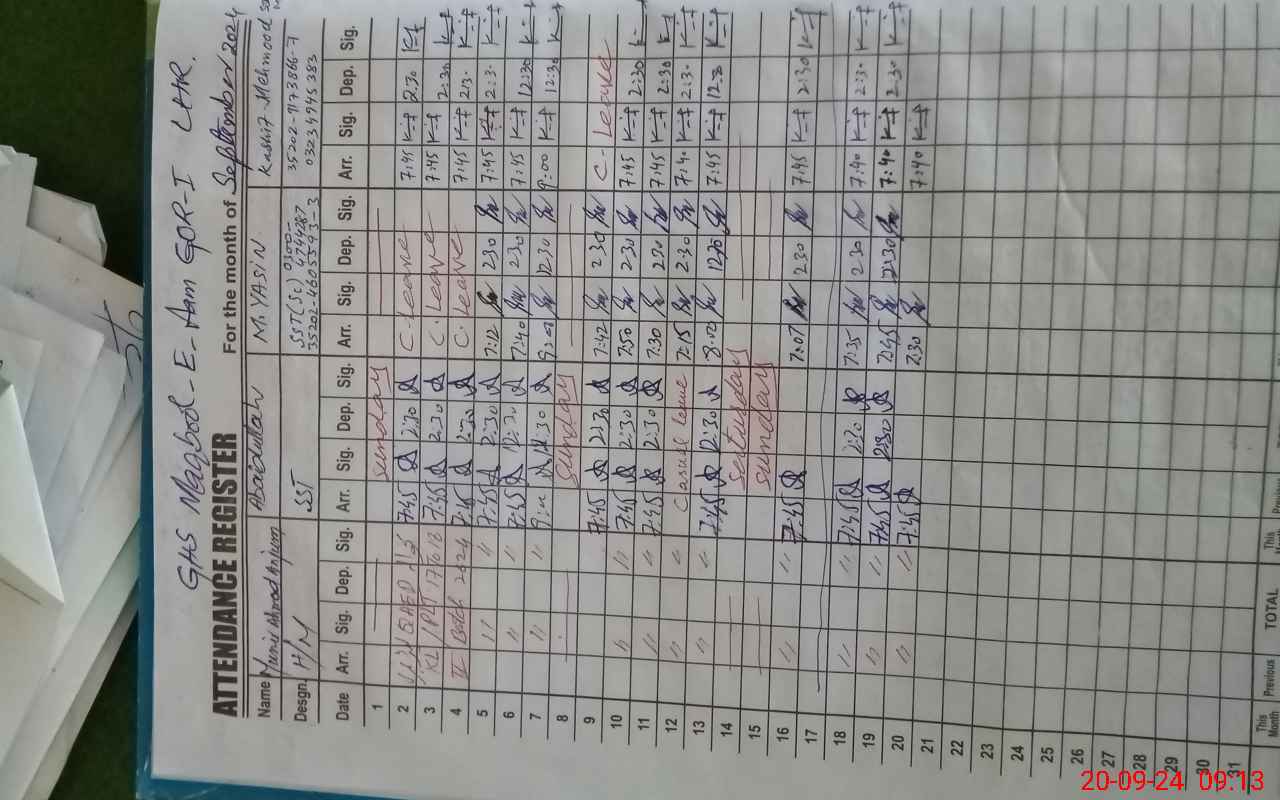 GHS Maqbool-E-Aam GOR-I LHR.
ATTENDANCE REGISTER For the month of September 2024
Name Munir Ahmad Anjum Abaidullah M. YASIN Kashif Mehmood
35202-9173866-7
Desgn. H/M SST SST(Sc) 0300-4744287 03234945383
35202-4605593-3
Date Arr. Sig. Dep. Sig. Arr. Sig. Dep. Sig. Arr. Sig. Dep. Sig. Arr. Sig. Dep. Sig.
1 sunday
2 7:45 2:30 C. Leave 7:45 2:30
3 7:45 2:30 C. Leave 7:45 2:30
4 Batch 2024 7:45 2:30 C. Leave 7:45 2:30
5 " " 7:45 2:30 7:12 2:30 7:45 2:30
6 " " 7:45 12:30 7:40 2:30 7:45 12:30
7 " " 9:00 12:30 9:00 12:30 9:00 12:30
8 sunday
9 7:45 2:30 7:42 2:30 C. Leave
10 " " 7:45 2:30 7:50 2:30 7:45 2:30
11 " " 7:45 2:30 7:30 2:30 7:45 2:30
12 " " Casual leave 7:15 2:30 7:40 2:30
13 " " 7:45 12:30 8:00 12:30 7:45 12:30
14 Saturday
15 sunday
16 " " 7:45 7:07 2:30 7:45 2:30
17
18 " " 7:45 2:30 7:35 2:30 7:40 2:30
19 " " 7:45 2:30 7:45 2:30 7:40 2:30
20 " " 7:45 7:30 7:40
21
22
23
24
25
26
27
28
29
30
31
This Month Previous TOTAL This Previous
20-09-24 09:13